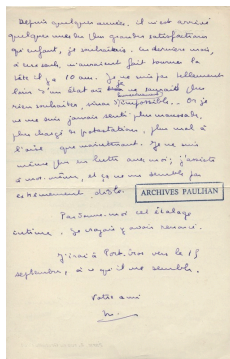 Depuis quelques années, il m'est arrivé
quelques unes des plus grandes satisfactions
qu'enfant, je souhaitais. Ces derniers mois,
à eux seuls, m'auraient fait tourner la
tête il y a 10 ans. Je ne suis pas tellement
loin d'un état où je ne saurais plus
rien souhaiter, sinon l'impossible. Or je
ne me suis jamais senti plus maussade,
plus chargé de protestations, plus mal à
l'aise que maintenant. Je ne suis
même pas en lutte avec moi ; j'assiste
à moi-même, et ça ne me semble pas
extrêmement drôle.
ARCHIVES PAULHAN
Pardonne-moi cet étalage
intime. Je croyais y avoir renoncé.
J'irai à Port-Cros vers le 15
septembre, à ce qu'il me semble.
Votre ami